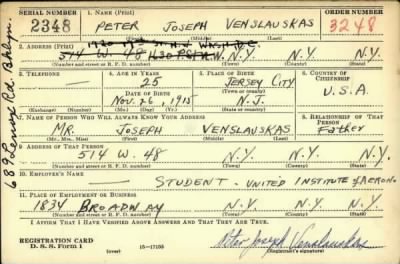 SERIAL NUMBER 1. NAME (Print) ORDER NUMBER
2348 PETER JOSEPH VENSLAUSKAS 3248
(First) (Middle) (Last)
2. ADDRESS (Print)
514 W. 48 N.Y. N.Y. N.Y.
(Number and street or R. F. D. number) (Town) (County) (State)
3. TELEPHONE 4. AGE IN YEARS 5. PLACE OF BIRTH 6. COUNTRY OF CITIZENSHIP
25 JERSEY CITY
(Town or county)
DATE OF BIRTH U.S.A.
NOV. 26, 1915 N.J.
(Exchange) (No.) (Mo.) (Day) (Yr.) (State or country)
7. NAME OF PERSON WHO WILL ALWAYS KNOW YOUR ADDRESS 8. RELATIONSHIP OF THAT PERSON
MR. JOSEPH VENSLAUSKAS Father
(Mr., Mrs., Miss) (First) (Middle) (Last)
9. ADDRESS OF THAT PERSON
514 W. 48 N.Y. N.Y. N.Y.
(Number and street or R. F. D. number) (Town) (County) (State)
10. EMPLOYER'S NAME
STUDENT - UNITED INSTITUTE of AERON.
11. PLACE OF EMPLOYMENT OR BUSINESS
1834 BROADWAY N.Y. N.Y. N.Y.
(Number and street or R. F. D. number) (Town) (County) (State)
I AFFIRM THAT I HAVE VERIFIED ABOVE ANSWERS AND THAT THEY ARE TRUE.
REGISTRATION CARD
D. S. S. Form 1 (over) 16-17105 Peter Joseph Venslauskas
(Registrant's signature)